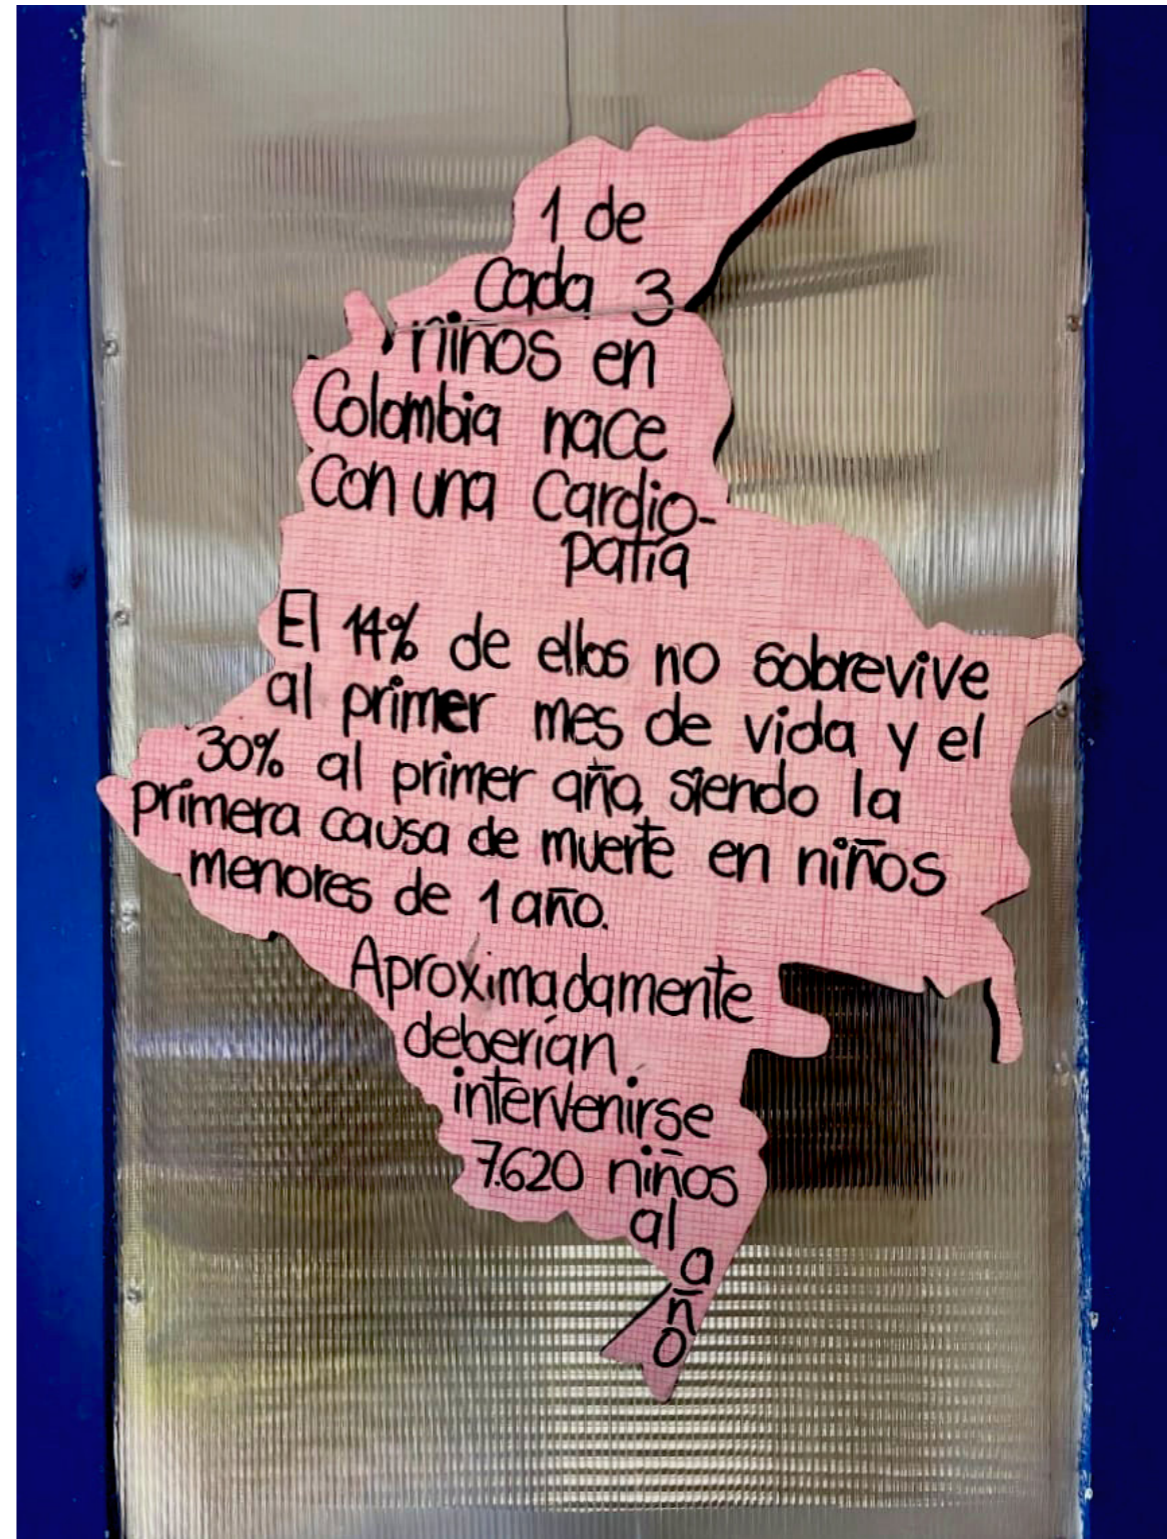 1 de
Cada 3
niños en
Colombia nace
Con una Cardio-
patía
El 14% de ellos no sobrevive
al primer mes de vida y el
30% al primer año, siendo la
primera causa de muerte en niños
menores de 1 año.
Aproximadamente
deberían
intervenirse
7.620 niños
al
año